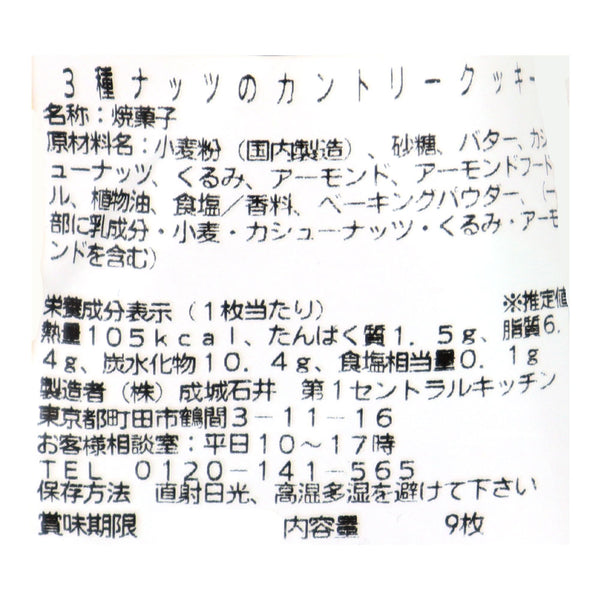 3種ナッツのカントリークッキー
名称：焼菓子
原材料名：小麦粉（国内製造）、砂糖、バター、カシ
ューナッツ、くるみ、アーモンド、アーモンドプード
ル、植物油、食塩／香料、ベーキングパウダー、（一
部に乳成分・小麦・カシューナッツ・くるみ・アーモ
ンドを含む）
栄養成分表示（1枚当たり） ※推定値
熱量105kcal、たんぱく質1．5g、脂質6．
4g、炭水化物10．4g、食塩相当量0．1g
製造者（株）成城石井 第1セントラルキッチン
東京都町田市鶴間3－11－16
お客様相談室：平日10～17時
TEL 0120－141－565
保存方法 直射日光、高温多湿を避けて下さい
賞味期限 内容量 9枚